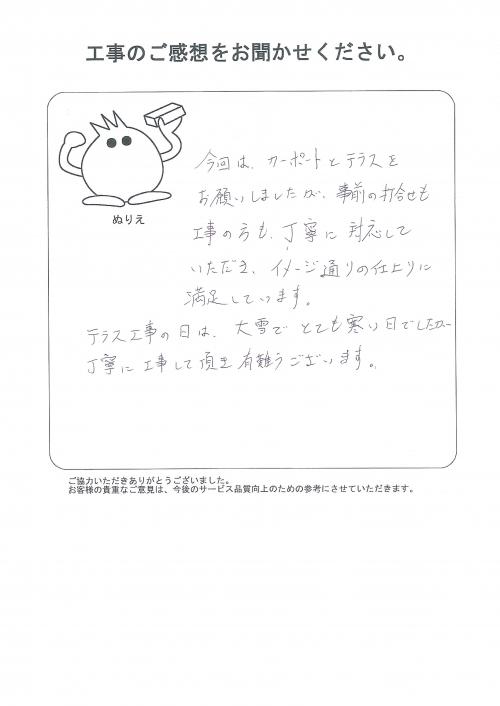 工事のご感想をお聞かせください。
ぬりえ
今回は、カーポートとテラスを
お願いしましたが、事前の打合せも
工事の方も、丁寧に対応して
いただき、イメージ通りの仕上りに
満足しています。
テラス工事の日は、大雪でとても寒い日でしたが
丁寧に工事して頂き有難うございます。
ご協力いただきありがとうございました。
お客様の貴重なご意見は、今後のサービス品質向上のための参考にさせていただきます。